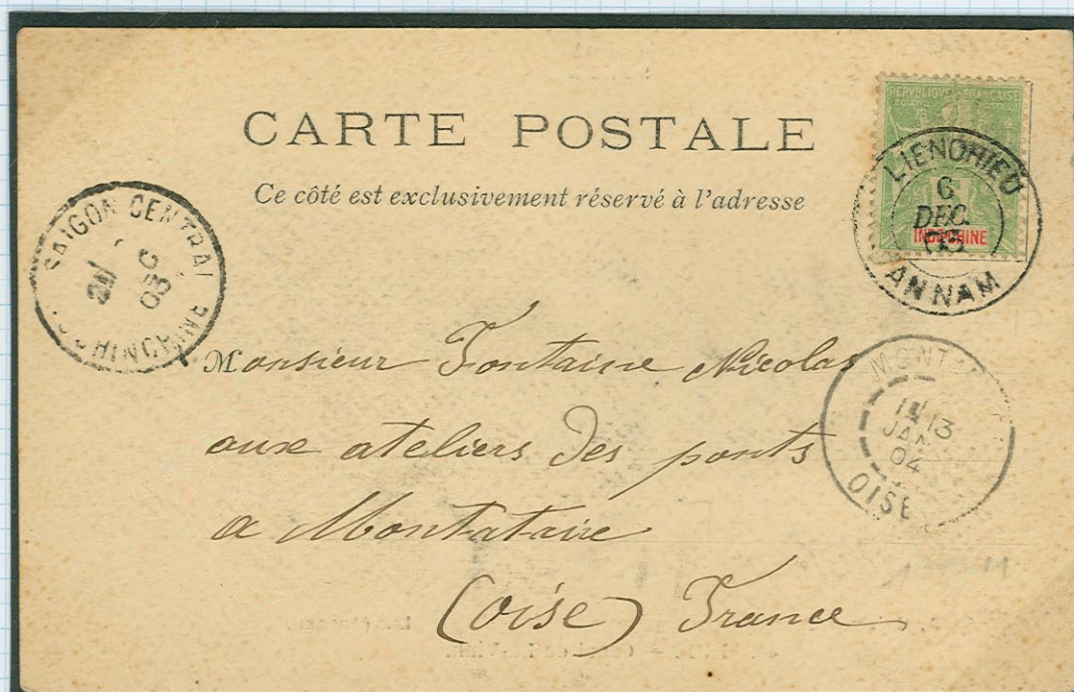 CARTE POSTALE
Ce côté est exclusivement réservé à l'adresse
REPUBLIQUE FRANÇAISE
INDOCHINE
LIENCHIEU
6
DEC.
03
ANNAM
SAIGON CENTRAL
DEC
03
Monsieur Fontaine Nicolas
aux ateliers des ponts
a Montataire
(oise) France
13
JAN
04
OISE